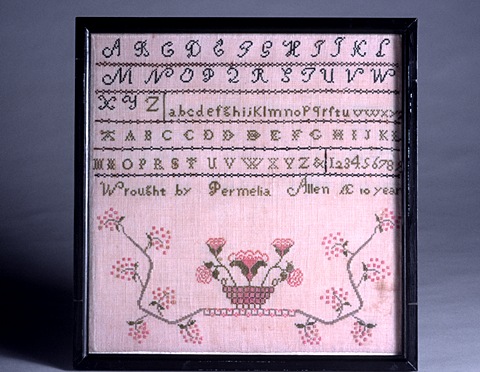 A B C D E F G H I J K L
M N O P Q R S T U V W
X Y Z abcdefghijklmnopqrſtuvwxy
A B C D E F G H I J K
M O P R S T U V W X Y Z & 12345678
Wrought by Permelia Allen Æ 10 year